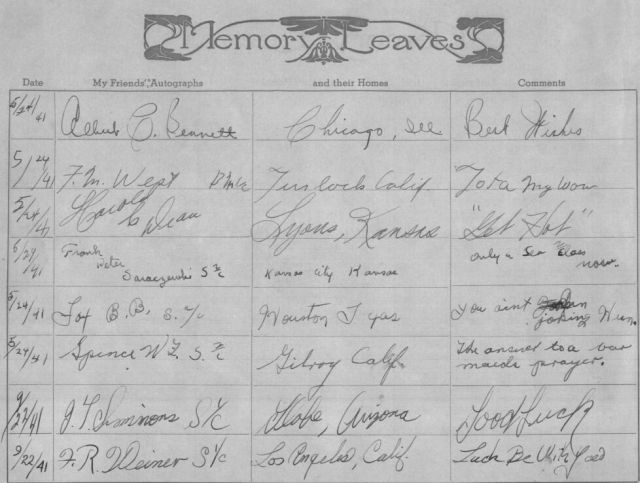 Memory Leaves
Date My Friends' Autographs and their Homes Comments
5/24/41 Albert C. Bennett Chicago, Ill Best Wishes
5/24/41 F. M. West Turlock Calif
5/24/41 Harold C Dean Lyons, Kansas "Get Hot"
5/24/41 Frank Peter S 2/c Kansas City Kansas Only a Sea 2/Class now.
5/24/41 Fox B. B. S. 1/c Houston Texas You ain't joking Hun.
5/24/41 Spence W. S. 2/c Gilroy Calif. The answer to a bar
maids prayer.
9/22/41 J. T. Simmons S 1/c Globe, Arizona Good Luck
9/22/41 F. R. Weiner S 1/c Los Angeles, Calif. Luck Be With You